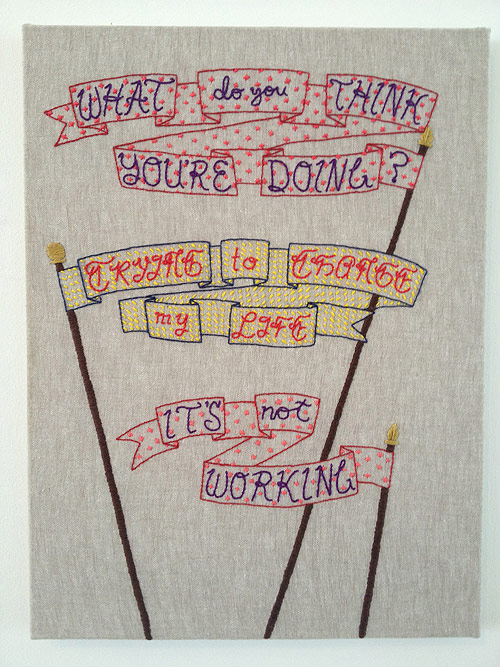 WHAT do you THINK
YOU'RE DOING?
TRYING to CHANGE
my LIFE
IT'S not
WORKING